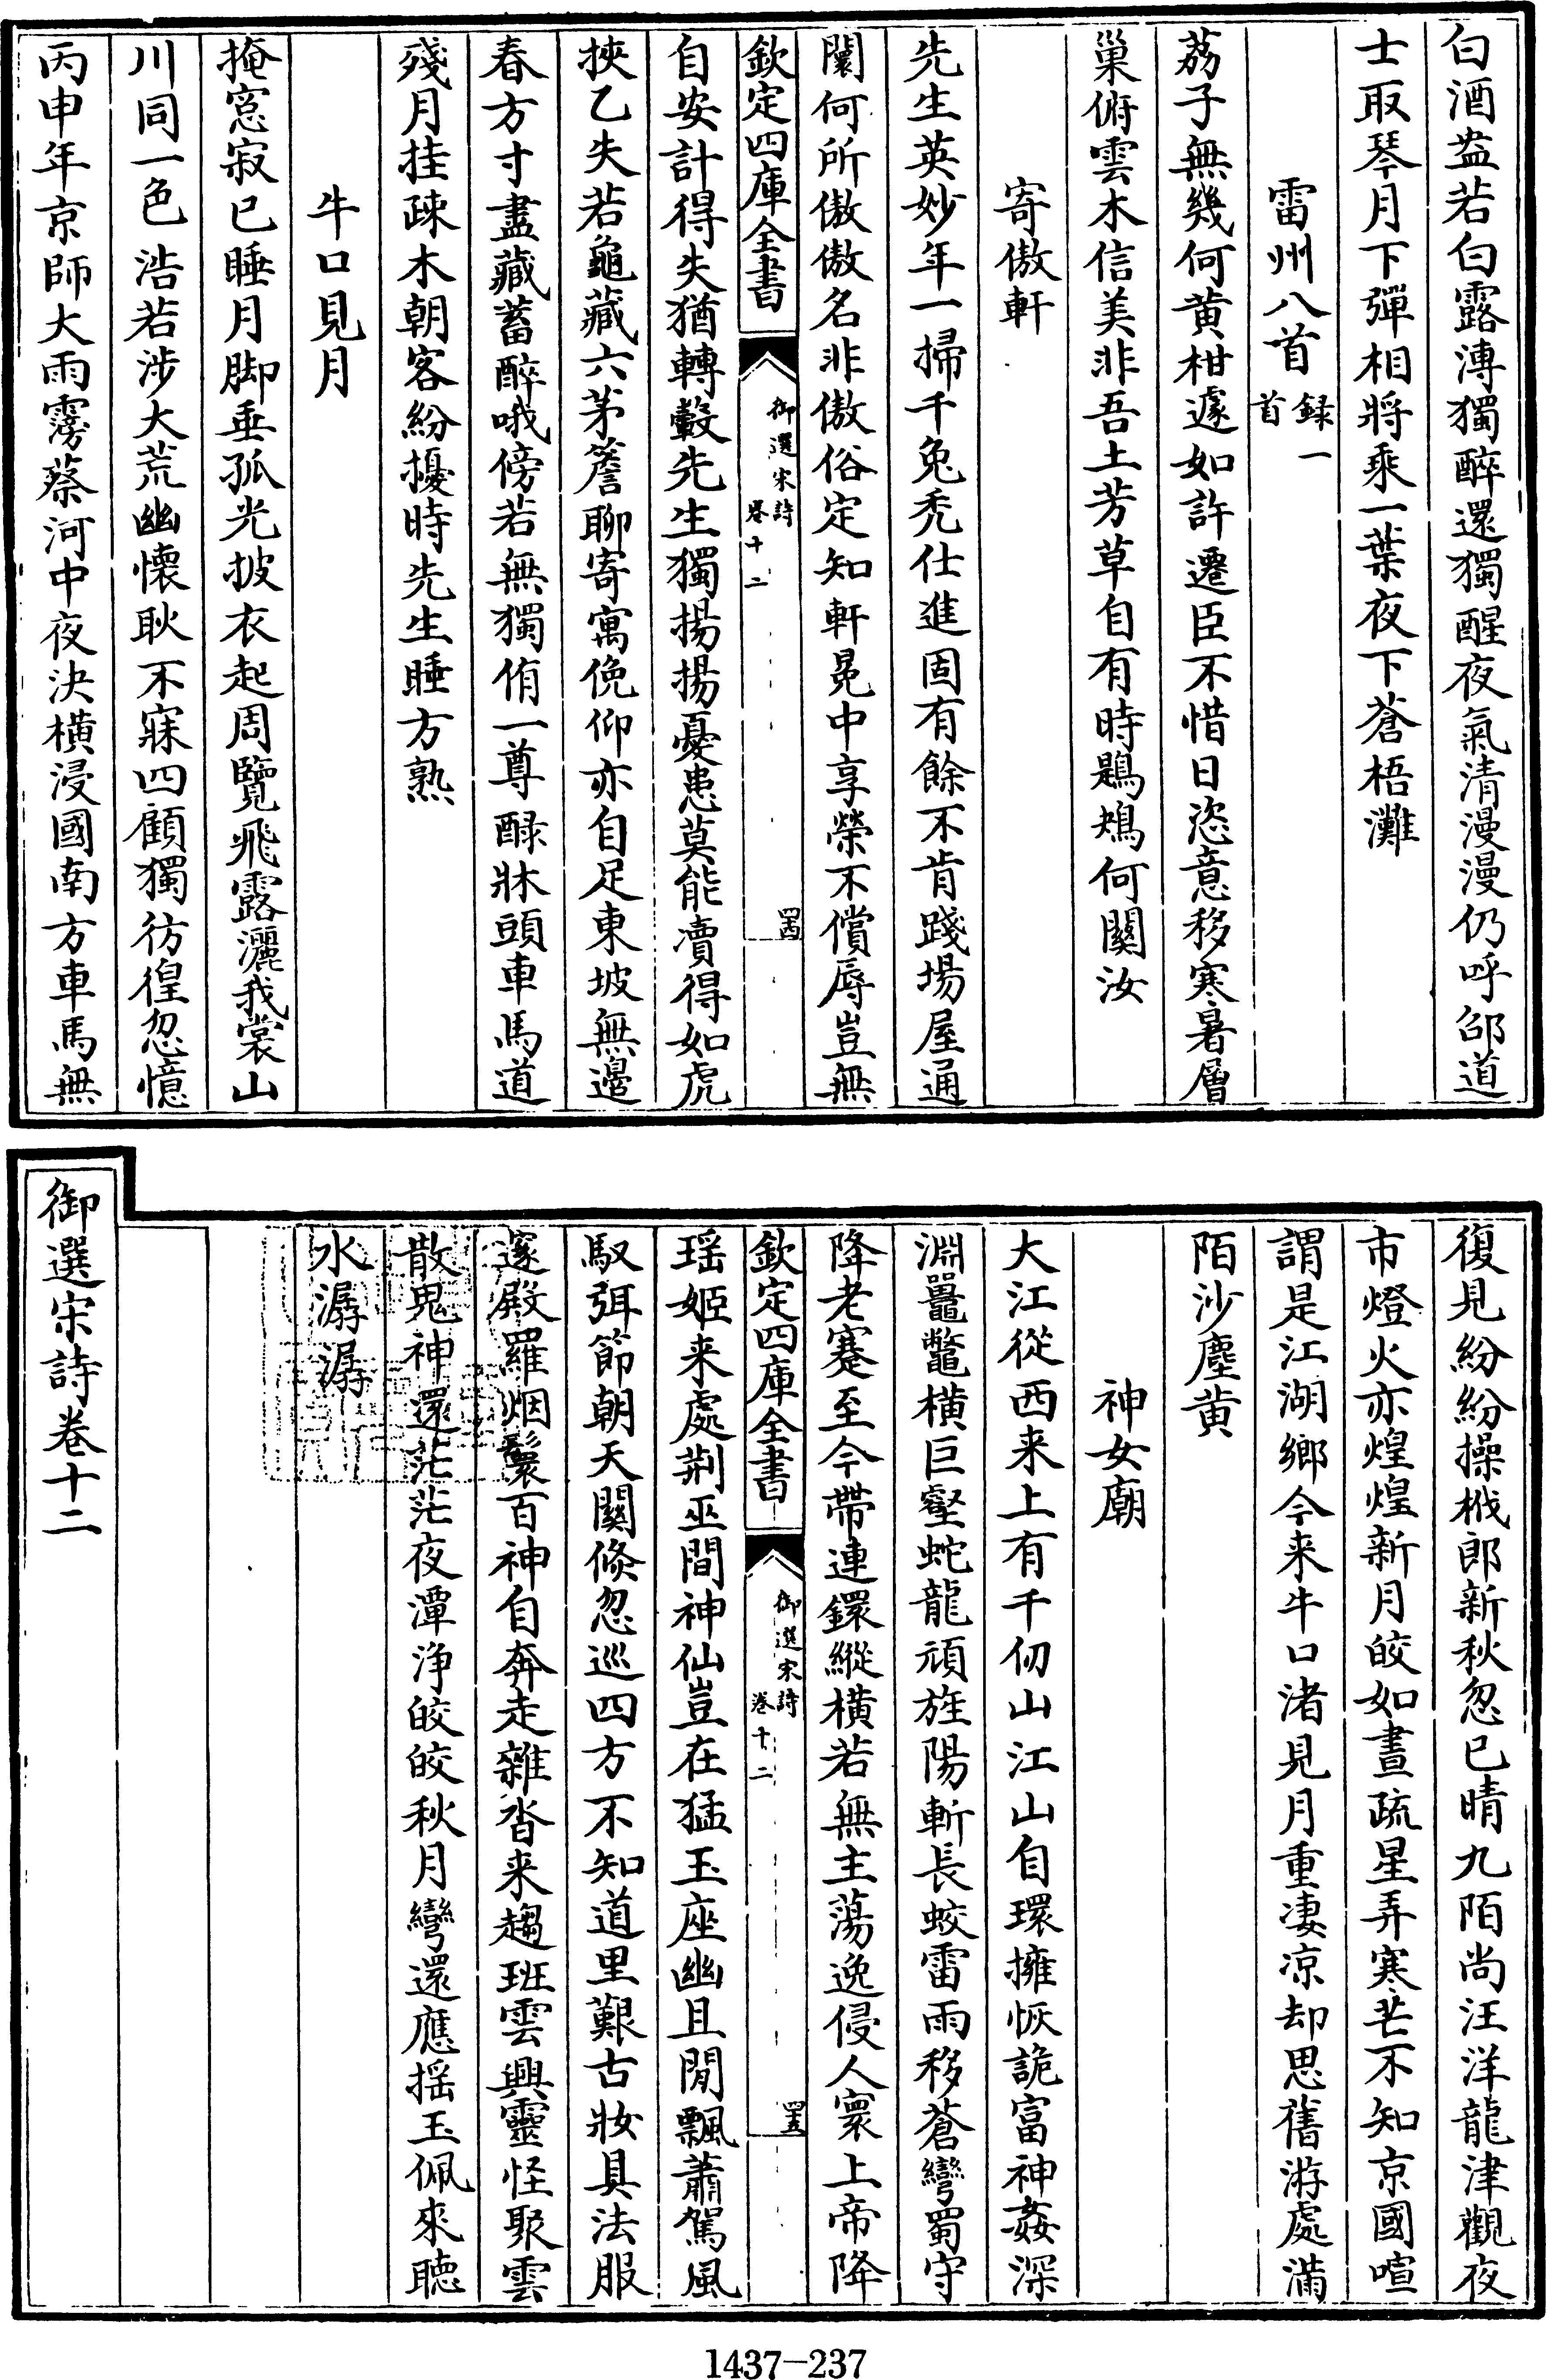 白酒盎若白露漙獨醉還獨醒夜氣清漫漫仍呼邵道
士取琴月下彈相將乘一葉夜下蒼梧灘
雷州八首錄一首
荔子無幾何黄柑遽如許遷臣不惜日恣意移寒暑層
巢俯雲木信美非吾土芳草自有時鶗鴂何關汝
寄傲軒
先生英妙年一掃千兔秃仕進固有餘不肯踐場屋通
闤何所傲傲名非傲俗定知軒冕中享榮不償辱豈無
欽定四庫全書
御選宋詩
卷十二
四四
自安計得失猶轉轂先生獨揚揚憂患莫能瀆得如虎
挾乙失若龜藏六茅簷聊寄寓俛仰亦自足東坡無邊
春方寸盡藏蓄醉哦傍若無獨侑一尊醁牀頭車馬道
殘月挂疎木朝客紛擾時先生睡方熟
牛口見月
掩窓寂已睡月脚垂孤光披衣起周覽飛露灑我裳山
川同一色浩若涉大荒幽懷耿不寐四顧獨彷徨忽憶
丙申年京師大雨霶蔡河中夜決横浸國南方車馬無
復見紛紛操栰郎新秋忽已晴九陌尚汪洋龍津觀夜
市燈火亦煌煌新月皎如晝疏星弄寒芒不知京國喧
謂是江湖鄉今来牛口渚見月重凄凉却思舊游處滿
陌沙塵黄
神女廟
大江從西来上有千仞山江山自環擁恢詭富神姦深
淵鼉鼈横巨壑蛇龍頑旌陽斬長蛟雷雨移蒼彎蜀守
降老蹇至今帶連鐶縱横若無主蕩逸侵人寰上帝降
欽定四庫全書
御選宋詩
卷十二
四五
瑶姬来處荆巫間神仙豈在猛玉座幽且閒飄蕭駕風
馭弭節朝天關倐忽巡四方不知道里艱古妝具法服
邃殿羅烟鬟百神自奔走雜沓来趨班雲興靈怪聚雲
散鬼神還茫茫夜潭浄皎皎秋月彎還應揺玉佩來聽
水潺潺
御選宋詩卷十二
1437-237